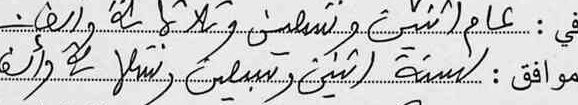 في : عام اثنين و تسعين و ثلاثمائة والف
موافق : لسنة اثنين وسبعين وتسعمائة وألف